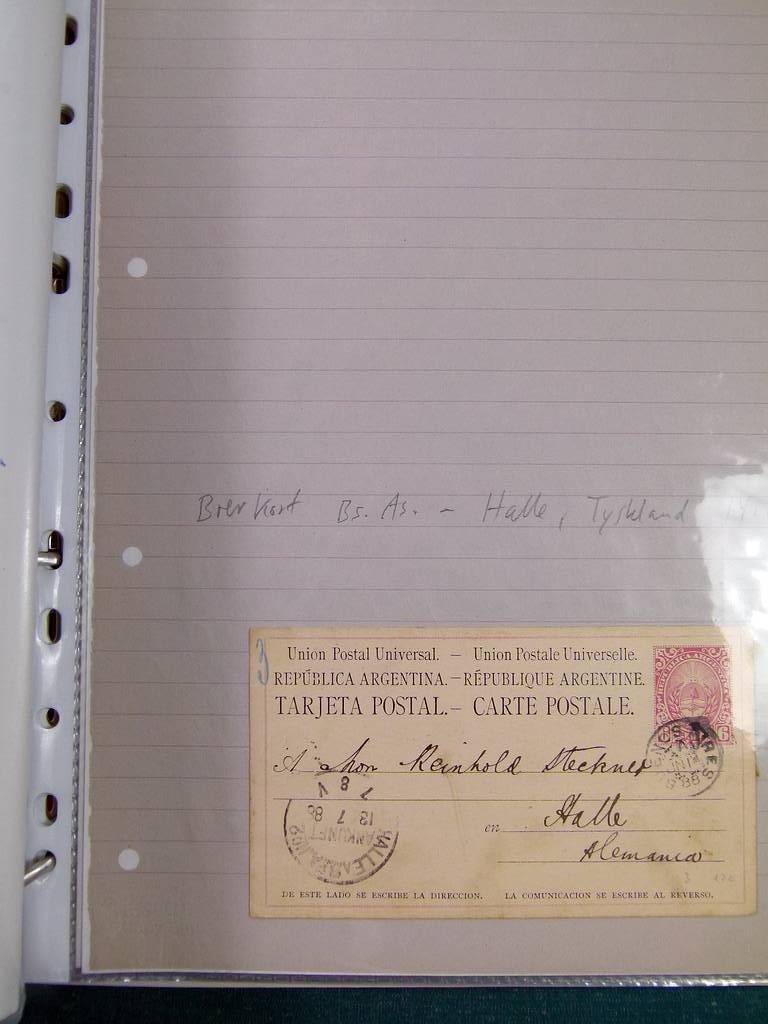 Brevkort Bs. As. - Halle, Tyskland
3
Union Postal Universal. — Union Postale Universelle.
REPÚBLICA ARGENTINA. — RÉPUBLIQUE ARGENTINE.
TARJETA POSTAL. — CARTE POSTALE.
6 6
A Mon Reinhold Steckner
en Halle
Alemania
HALLE
ANKUNFT
13 7 88
7 8 V
DE ESTE LADO SE ESCRIBE LA DIRECCION. LA COMUNICACION SE ESCRIBE AL REVERSO.